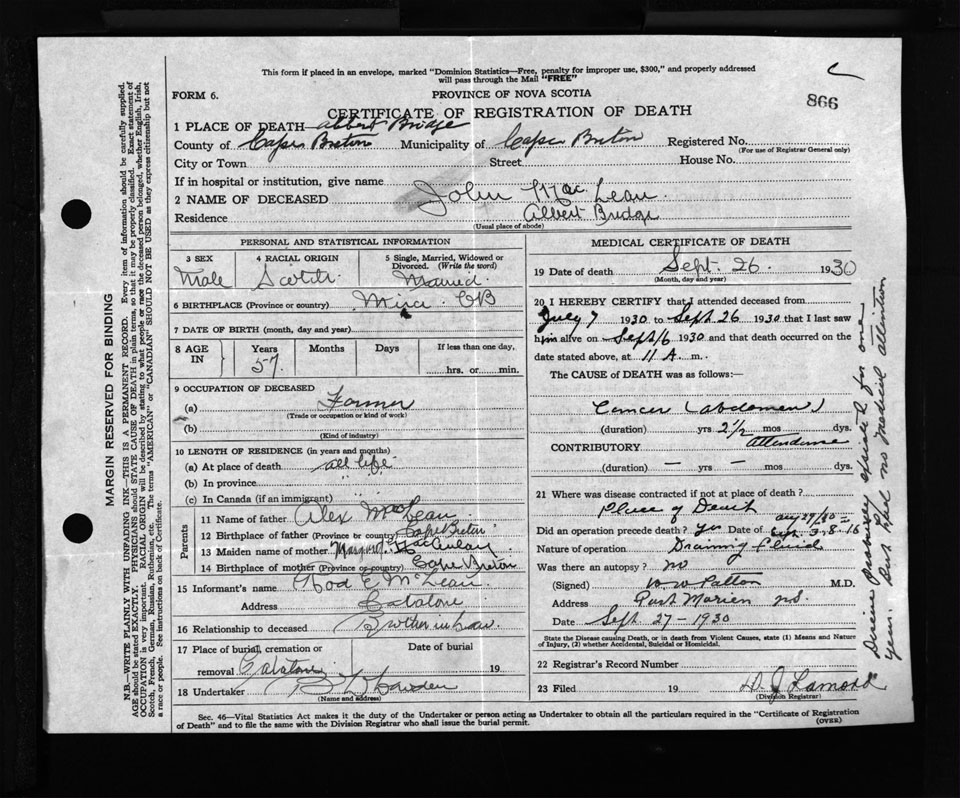 This form if placed in an envelope, marked "Dominion Statistics—Free, penalty for improper use, $300," and properly addressed
will pass through the Mail "FREE"
866
FORM 6.
PROVINCE OF NOVA SCOTIA
CERTIFICATE OF REGISTRATION OF DEATH
1 PLACE OF DEATH Albert Bridge
County of Cape Breton Municipality of Cape Breton Registered No.
(For use of Registrar General only)
City or Town Street House No.
If in hospital or institution, give name
2 NAME OF DECEASED John MacLean
Residence Albert Bridge
(Usual place of abode)
PERSONAL AND STATISTICAL INFORMATION
3 SEX 4 RACIAL ORIGIN 5 Single, Married, Widowed or Divorced. (Write the word)
Male Scotch Married
6 BIRTHPLACE (Province or country) Mira CB
7 DATE OF BIRTH (month, day and year)
8 AGE IN Years Months Days If less than one day,
57 hrs. or min.
9 OCCUPATION OF DECEASED
(a) Farmer
(Trade or occupation or kind of work)
(b)
(Kind of industry)
10 LENGTH OF RESIDENCE (in years and months)
(a) At place of death all life
(b) In province "
(c) In Canada (if an immigrant)
Parents
11 Name of father Alex MacLean
12 Birthplace of father (Province or country) Cape Breton
13 Maiden name of mother Margaret MacAulay
14 Birthplace of mother (Province or country) Cape Breton
15 Informant's name Rod E McLean
Address Catalone
16 Relationship to deceased Brother in law
17 Place of burial, cremation or Date of burial
removal Catalone 19
18 Undertaker
(Name and address)
MEDICAL CERTIFICATE OF DEATH
19 Date of death Sept. 26 1930
(Month, day and year)
20 I HEREBY CERTIFY that I attended deceased from
July 7 1930 to Sept 26 1930 that I last saw
him alive on Sept 16 1930 and that death occurred on the
date stated above, at 11 A m.
The CAUSE of DEATH was as follows:—
Cancer (abdomen)
(duration) yrs 2 1/2 mos dys.
attendance
CONTRIBUTORY
(duration) — yrs — mos dys.
21 Where was disease contracted if not at place of death?
Place of Death
Aug 29/30 =
Did an operation precede death? Yes Date of Sept 3, 8, 16
Nature of operation Draining Fluid
Was there an autopsy? no
(Signed) Patton M.D.
Address Port Morien NS.
Date Sept 27-1930
State the Disease causing Death, or in death from Violent Causes, state (1) Means and Nature
of Injury, (2) whether Accidental, Suicidal or Homicidal.
22 Registrar's Record Number
23 Filed 19 D. J. Lamond
(Division Registrar)
Sec. 46—Vital Statistics Act makes it the duty of the Undertaker or person acting as Undertaker to obtain all the particulars required in the "Certificate of Registration
of Death" and to file the same with the Division Registrar who shall issue the burial permit.
(OVER)
MARGIN RESERVED FOR BINDING
N.B.—WRITE PLAINLY WITH UNFADING INK—THIS IS A PERMANENT RECORD. Every item of information should be carefully supplied.
AGE should be stated EXACTLY. PHYSICIANS should STATE CAUSE OF DEATH in plain terms, so that it may be properly classified. Exact statement of
OCCUPATION is very important. RACIAL ORIGIN will be described by stating to what people or race the deceased person belonged, whether English, Irish,
Scotch, French, German, Russian, Ruthenian, etc. The terms "AMERICAN" or "CANADIAN" SHOULD NOT BE USED as they express citizenship but not
a race or people. See instructions on back of Certificate.
Disease probably existed for one
year. But had no medical attention